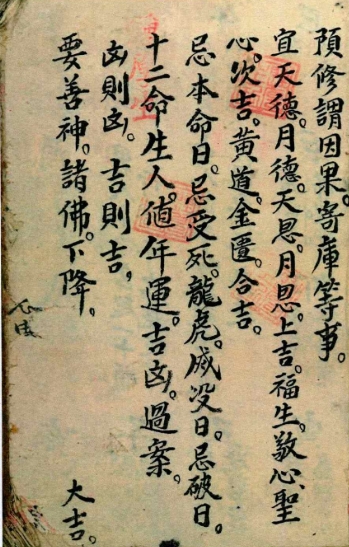 預修謂因果。寄庫等事。
宜天德。月德。天恩。月恩。上吉。福生。敬心。聖
心。次吉。黃道。金匱。合吉。
忌本命日。忌受死。龍虎。滅没日。忌破日。
十二命生人。值年運。吉凶。過案。
凶則凶。吉則吉,
要善神。諸佛。下降。
大吉。